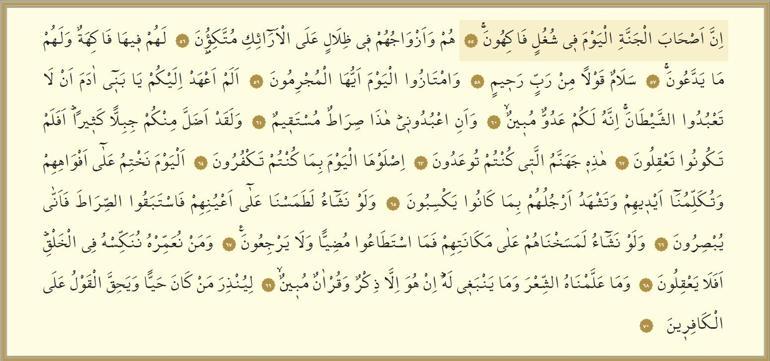 اِنَّ اَصْحَابَ الْجَنَّةِ الْيَوْمَ فٖي شُغُلٍ فَاكِهُونَۚ ﴿٥٥﴾ هُمْ وَاَزْوَاجُهُمْ فٖي ظِلَالٍ عَلَى الْاَرَٓائِكِ مُتَّكِؤُ۫نَ ﴿٥٦﴾ لَهُمْ فٖيهَا فَاكِهَةٌ وَلَهُمْ
مَا يَدَّعُونَۚ ﴿٥٧﴾ سَلَامٌ قَوْلًا مِنْ رَبٍّ رَحٖيمٍ ﴿٥٨﴾ وَامْتَازُوا الْيَوْمَ اَيُّهَا الْمُجْرِمُونَ ﴿٥٩﴾ اَلَمْ اَعْهَدْ اِلَيْكُمْ يَا بَنٖٓي اٰدَمَ اَنْ لَا
تَعْبُدُوا الشَّيْطَانَۚ اِنَّهُ لَكُمْ عَدُوٌّ مُبٖينٌۙ ﴿٦٠﴾ وَاَنِ اعْبُدُونٖيؕ هٰذَا صِرَاطٌ مُسْتَقٖيمٌ ﴿٦١﴾ وَلَقَدْ اَضَلَّ مِنْكُمْ جِبِلًّا كَثٖيرًاؕ اَفَلَمْ
تَكُونُوا تَعْقِلُونَ ﴿٦٢﴾ هٰذِهٖ جَهَنَّمُ الَّتٖي كُنْتُمْ تُوعَدُونَ ﴿٦٣﴾ اِصْلَوْهَا الْيَوْمَ بِمَا كُنْتُمْ تَكْفُرُونَ ﴿٦٤﴾ اَلْيَوْمَ نَخْتِمُ عَلٰٓى اَفْوَاهِهِمْ
وَتُكَلِّمُنَٓا اَيْدٖيهِمْ وَتَشْهَدُ اَرْجُلُهُمْ بِمَا كَانُوا يَكْسِبُونَ ﴿٦٥﴾ وَلَوْ نَشَٓاءُ لَطَمَسْنَا عَلٰٓى اَعْيُنِهِمْ فَاسْتَبَقُوا الصِّرَاطَ فَاَنّٰى
يُبْصِرُونَ ﴿٦٦﴾ وَلَوْ نَشَٓاءُ لَمَسَخْنَاهُمْ عَلٰى مَكَانَتِهِمْ فَمَا اسْتَطَاعُوا مُضِيًّا وَلَا يَرْجِعُونَۚ ﴿٦٧﴾ وَمَنْ نُعَمِّرْهُ نُنَكِّسْهُ فِي الْخَلْقِؕ
اَفَلَا يَعْقِلُونَ ﴿٦٨﴾ وَمَا عَلَّمْنَاهُ الشِّعْرَ وَمَا يَنْبَغٖي لَهُؕ اِنْ هُوَ اِلَّا ذِكْرٌ وَقُرْاٰنٌ مُبٖينٌۙ ﴿٦٩﴾ لِيُنْذِرَ مَنْ كَانَ حَيًّا وَيَحِقَّ الْقَوْلُ عَلَى
الْكَافِرٖينَ ﴿٧٠﴾